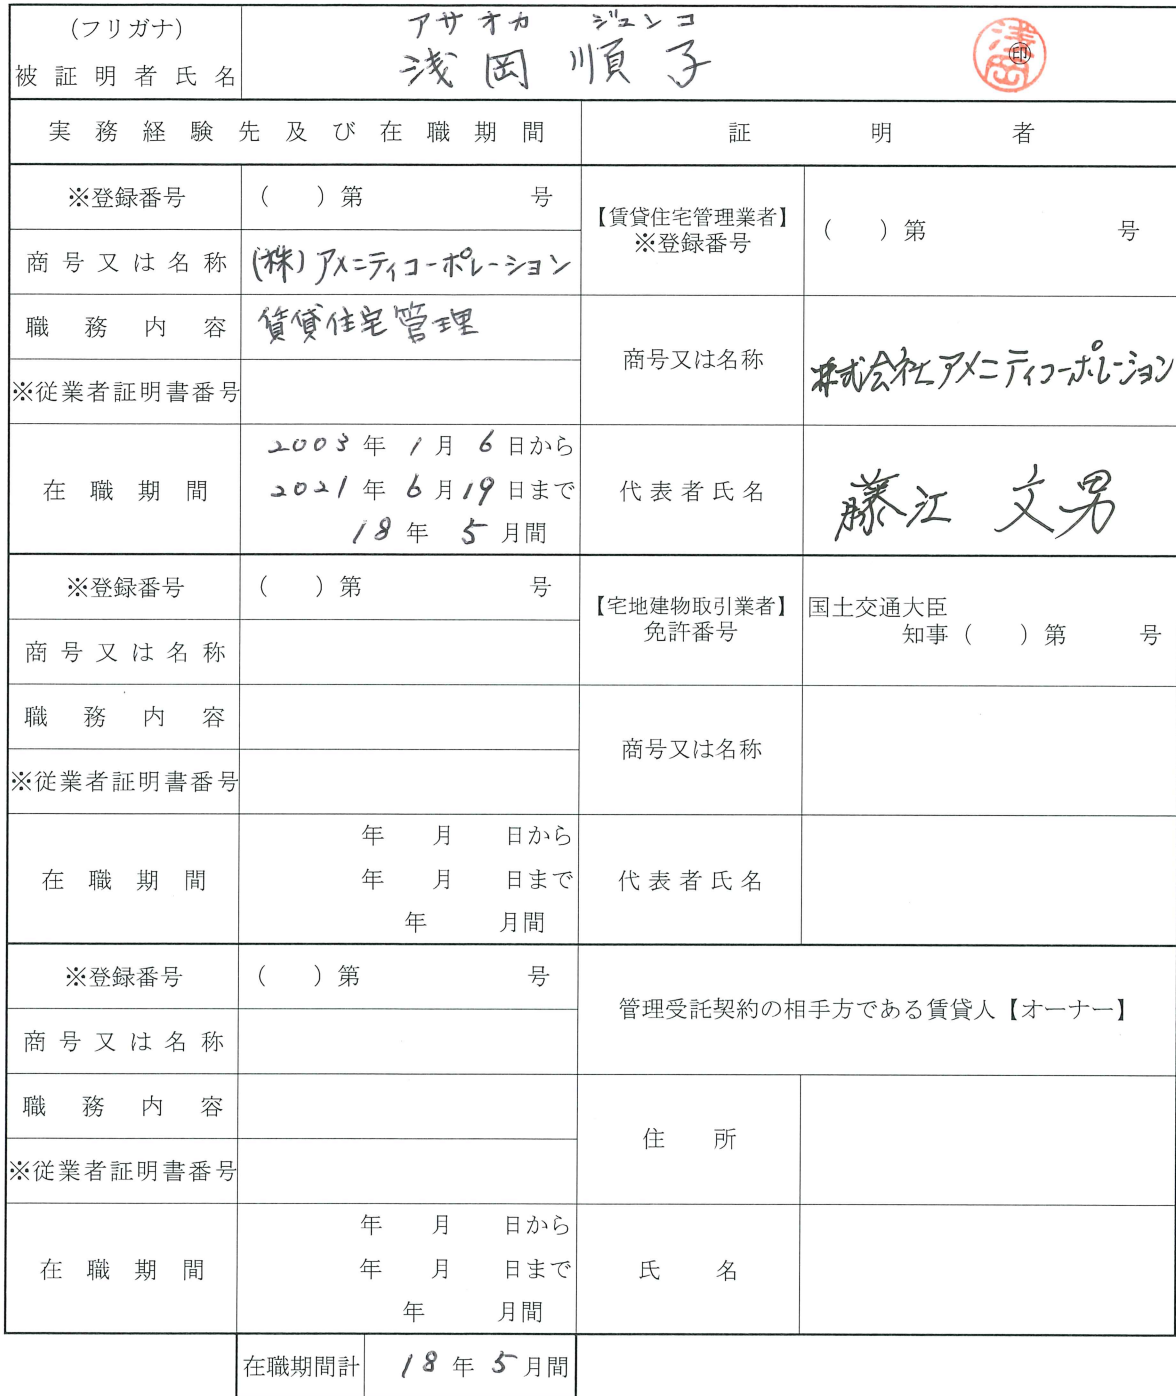 (フリガナ) アサオカ ジュンコ
被証明者氏名 浅岡順子 浅岡 ㊞
実務経験先及び在職期間 証明者
※登録番号 ( )第 号
【賃貸住宅管理業者】
※登録番号 ( )第 号
商号又は名称 (株)アメニティコーポレーション
職務内容 賃貸住宅管理
商号又は名称 株式会社アメニティコーポレーション
※従業者証明書番号
在職期間
2003年1月6日から
2021年6月19日まで
18年5月間
代表者氏名 藤江 文男
※登録番号 ( )第 号
【宅地建物取引業者】
免許番号
国土交通大臣
知事( )第 号
商号又は名称
職務内容
商号又は名称
※従業者証明書番号
在職期間
年 月 日から
年 月 日まで
年 月間
代表者氏名
※登録番号 ( )第 号
管理受託契約の相手方である賃貸人【オーナー】
商号又は名称
職務内容
住所
※従業者証明書番号
在職期間
年 月 日から
年 月 日まで
年 月間
氏名
在職期間計 18年5月間